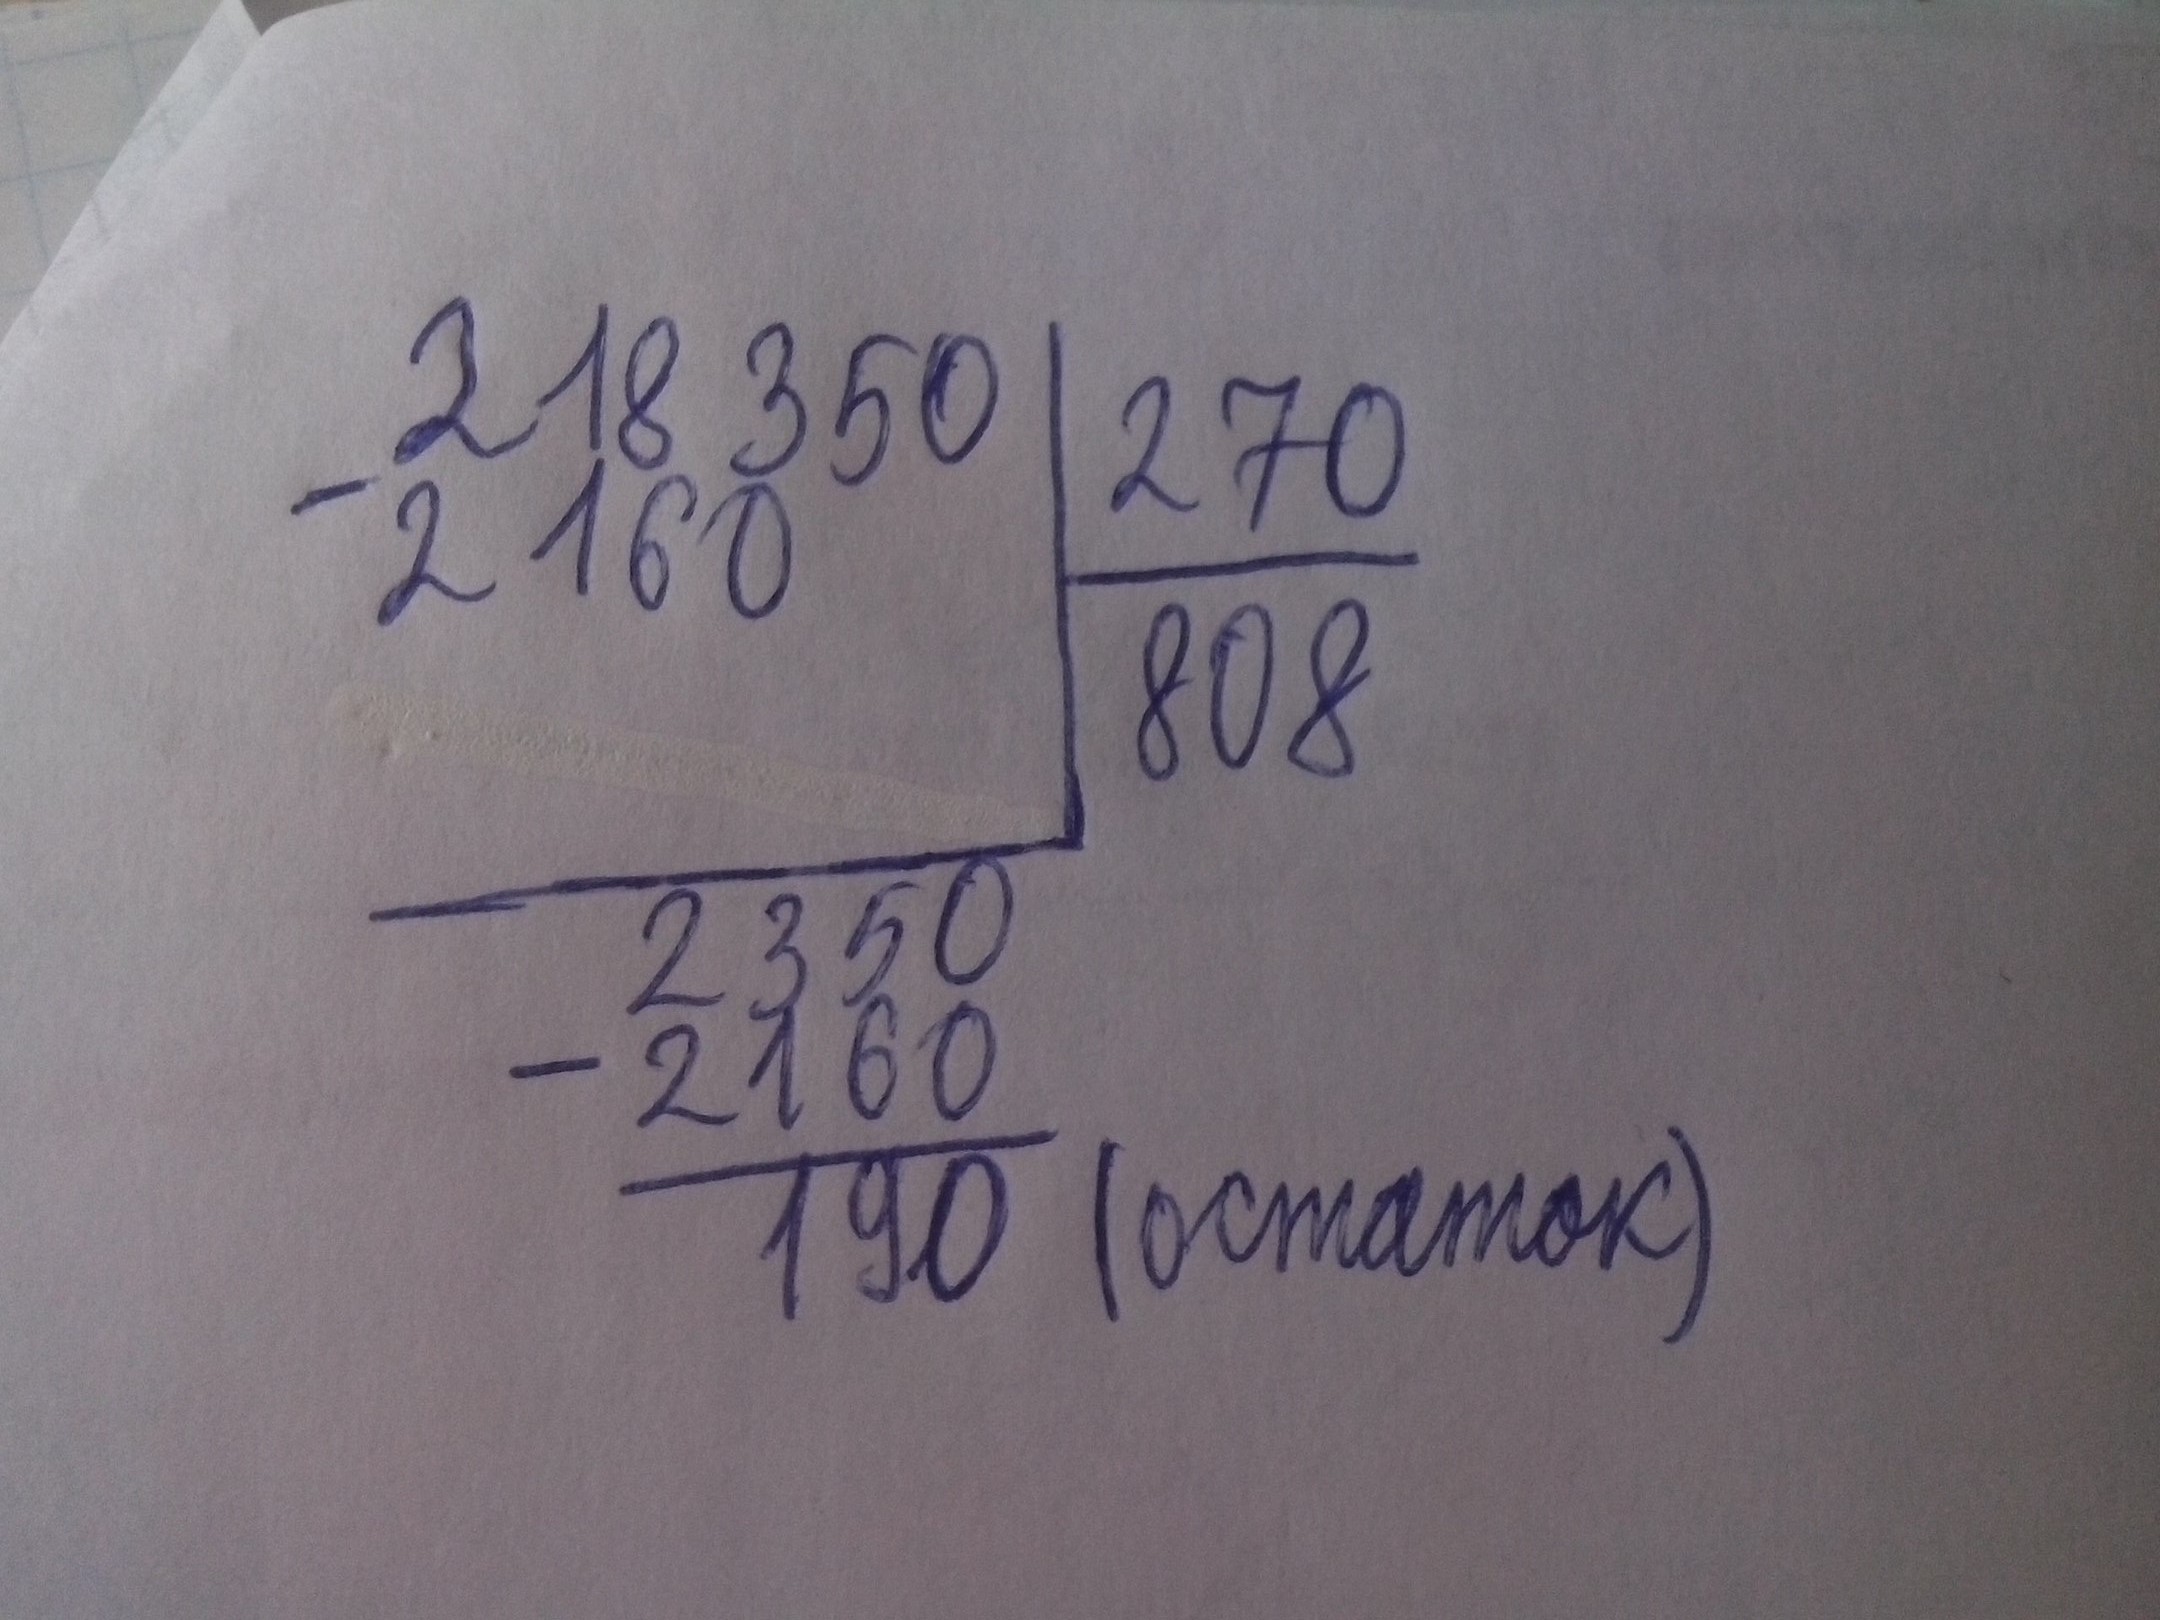 218 350 270
- 2160
808
2350
- 2160
190 (остаток)